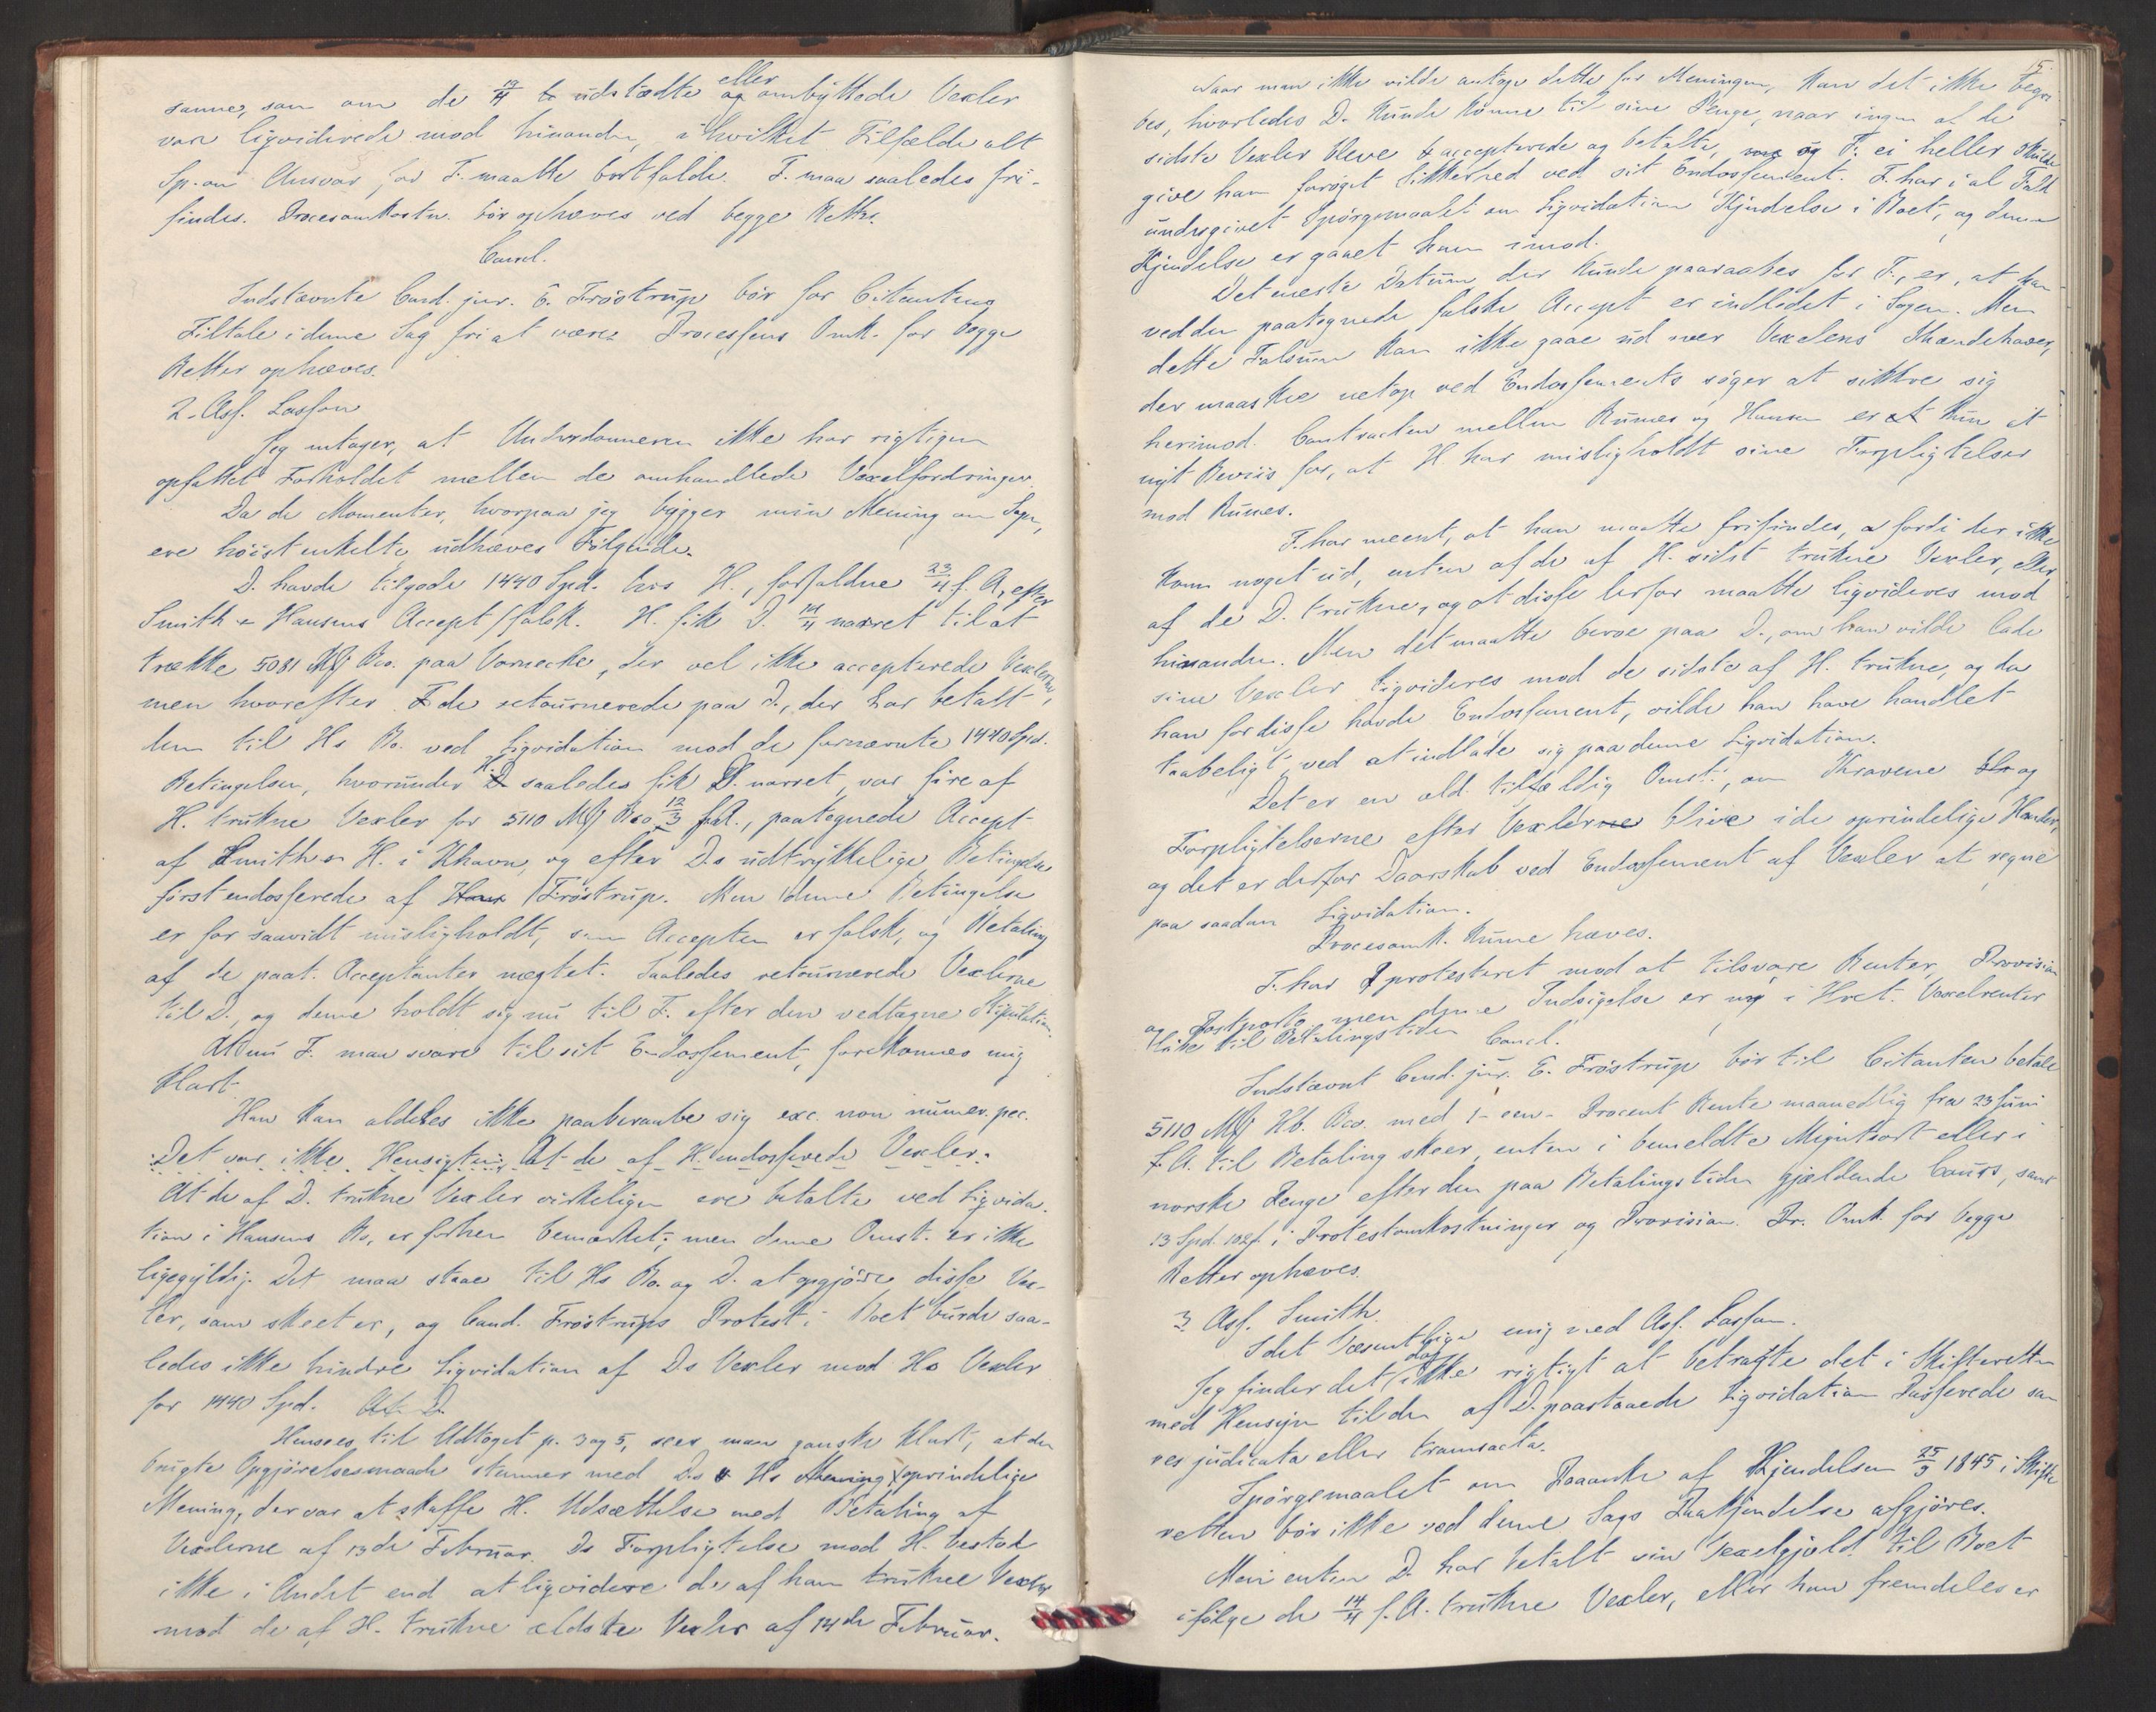 samme, som om de 14/4 udstædte eller ombyttede Vexler
vare liqviderede mod hinanden, i hvilket Tilfælde alt
Sp. om Ansvar for F. maatte bortfalde. F. maa saaledes fri-
findes. Procesomkostn. bör ophæves ved begge Retter.
Concl.
Indstævnte Cand. jur. E. Fröstrup bör for Citantens
Tiltale i denne Sag fri at være. Processens Omk. for begge
Retter ophæves.
2. Ass. Lasson
Jeg antager, at Underdommeren ikke har rigtigen
opfattet Forholdet mellem de omhandlede Vexelfordringer.
Da de Momenter, hvorpaa jeg bygger min Mening om Sagen,
ere höist enkelte udhæves Fölgende.
D. havde tilgode 1440 Spd. hos H., forfaldne 23/4 f. A., efter
Smith & Hansens Accept falsk. H. fik D. 14/4 narret til at
trække 5081 Mk Bco. paa Warnecke, der vel ikke accepterede Vexlerne,
men hvorefter de retournerede paa D., der har betalt
dem til Hs Bo. ved Liqvidation mod de fornævnte 1440 Spd.
Betingelsen, hvorunder H. saaledes fik D. narret, var fire af
H. trukne Vexler for 5110 Mk Bco 12/3 f. A., paategnede Accept
af Smith & H. i Khavn, og efter Ds udtrykkelige Betingelse
först endosserede af Fröstrup. Men denne Betingelse
er for saavidt misligholdt, som Accepten er falsk, og Betaling
af de paat. Acceptanter nægtet. Saaledes retournerede Vexlerne
til D., og denne holdt sig nu til F. efter den vedtagne Stipulation.
At nu F. maa svare til sit Endossement, forekommer mig
klart.
Han kan aldeles ikke paaberaabe sig exc. non numer. pec.
Det var ikke Hensigten, at de af H. endosserede Vexler.
At de af D. trukne Vexler virkeligen ere betalte ved Liqvida-
tion i Hansens Bo, er forhen bemærket; men denne Omst. er ikke
ligegyldig. Det maa staae til Hs Bo. og D. at opgjöre disse Vex-
ler, som skeet er, og Cand. Fröstrups Protest i Boet burde saa-
ledes ikke hindre Liqvidation af Ds Vexler mod Hs Vexler
for 1440 Spd. At D.
Henses til Udtoget p. 3 og 5, sees man ganske klart, at den
brugte Opgjörelsesmaade stemmer med Ds & Hs Mening oprindelige
Mening, der var at skaffe H. Udsættelse med Betaling af
Vexlerne af 13de Februar. Ds Forpligtelse mod H. bestod
ikke i Andet end at liqvidere de af ham trukne Vexler
mod de af H. trukne ældste Vexler af 14de Februar.
15.
Naar man ikke vilde antage dette for Meningen, kan det ikke begri-
bes, hvorledes D. kunde komme til sine Penge, naar ingen af de
sidste Vexler bleve accepterede og betalte, og F. ei heller skulde
give ham foröget Sikkerhed ved sit Endossement. F. har i al Fald
undergivet Spörgsmaalet om Liqvidation Kjendelse i Boet, og denne
Kjendelse er gaaet ham imod.
Det eneste Datum, der kunde paaraabes for F., er, at han
ved den paategnede falske Accept er indledet i Sagen. Men
dette Falsum kan ikke gaae ud over Vexelens Ihændehaver,
der maaskee netop ved Endossements söger at sikkre sig
herimod. Contracten mellem Rumes og Hansen er kun et
nyt Beviis for, at H har misligholdt sine Forpligtelser
mod Rumes.
F. har meent, at han maatte frifindes, fordi der ikke
kom noget ud, enten af de af H. sidst trukne Vexler, eller
af de D. trukne, og at disse derfor maatte liqvideres mod
hinanden. Men det maatte beroe paa D., om han vilde lade
sine Vexler liqvideres mod de sidste af H. trukne, og da
han for disse havde Endossement, vilde han have handlet
taabeligt ved at indlade sig paa denne Liqvidation.
Det er en ald. tilfældig Omst., om Kravene og
Forpligtelserne efter Vexlerne blive i de oprindelige Hænder,
og det er derfor Daarskab ved Endossement af Vexler at regne
paa saadan Liqvidation.
Procesomk. kunne hæves.
F. har protesteret mod at tilsvare Renter, Provision
og Postporto, men denne Indsigelse er ny i Hret. Vexelrenter
til Betalingstiden
Concl.
Indstævnt Cand. jur. E. Fröstrup bör til Citanten betale
5110 Mk Hb. Bco. med 1 - een - Procent Rente maanedlig fra 23 Juni
f. A. til Betaling skeer, enten i bemeldte Myntsort eller i
norske Penge efter den paa Betalingstiden gjældende Cours, samt
13 Spd. 102 s. i Protestomkostninger og Provision. Pr. Omk. for begge
Retter ophæves.
3. Ass. Smith.
I det Væsentlige enig med Ass. Lasson.
Jeg finder det dog ikke rigtigt at betragte det i Skifteretten
med Hensyn til den af D. paastaaede Liqvidation Passerede som
res judicata eller transacta.
Spörgsmaalet om Paaanke af Kjendelsen 25/9 1845 i Skifte-
retten bör ikke ved denne Sags Paakjendelse afgjöres.
Men enten D. har betalt sin Vexelgjæld til Boet
ifölge de 14/4 f. A. trukne Vexler, eller han fremdeles er